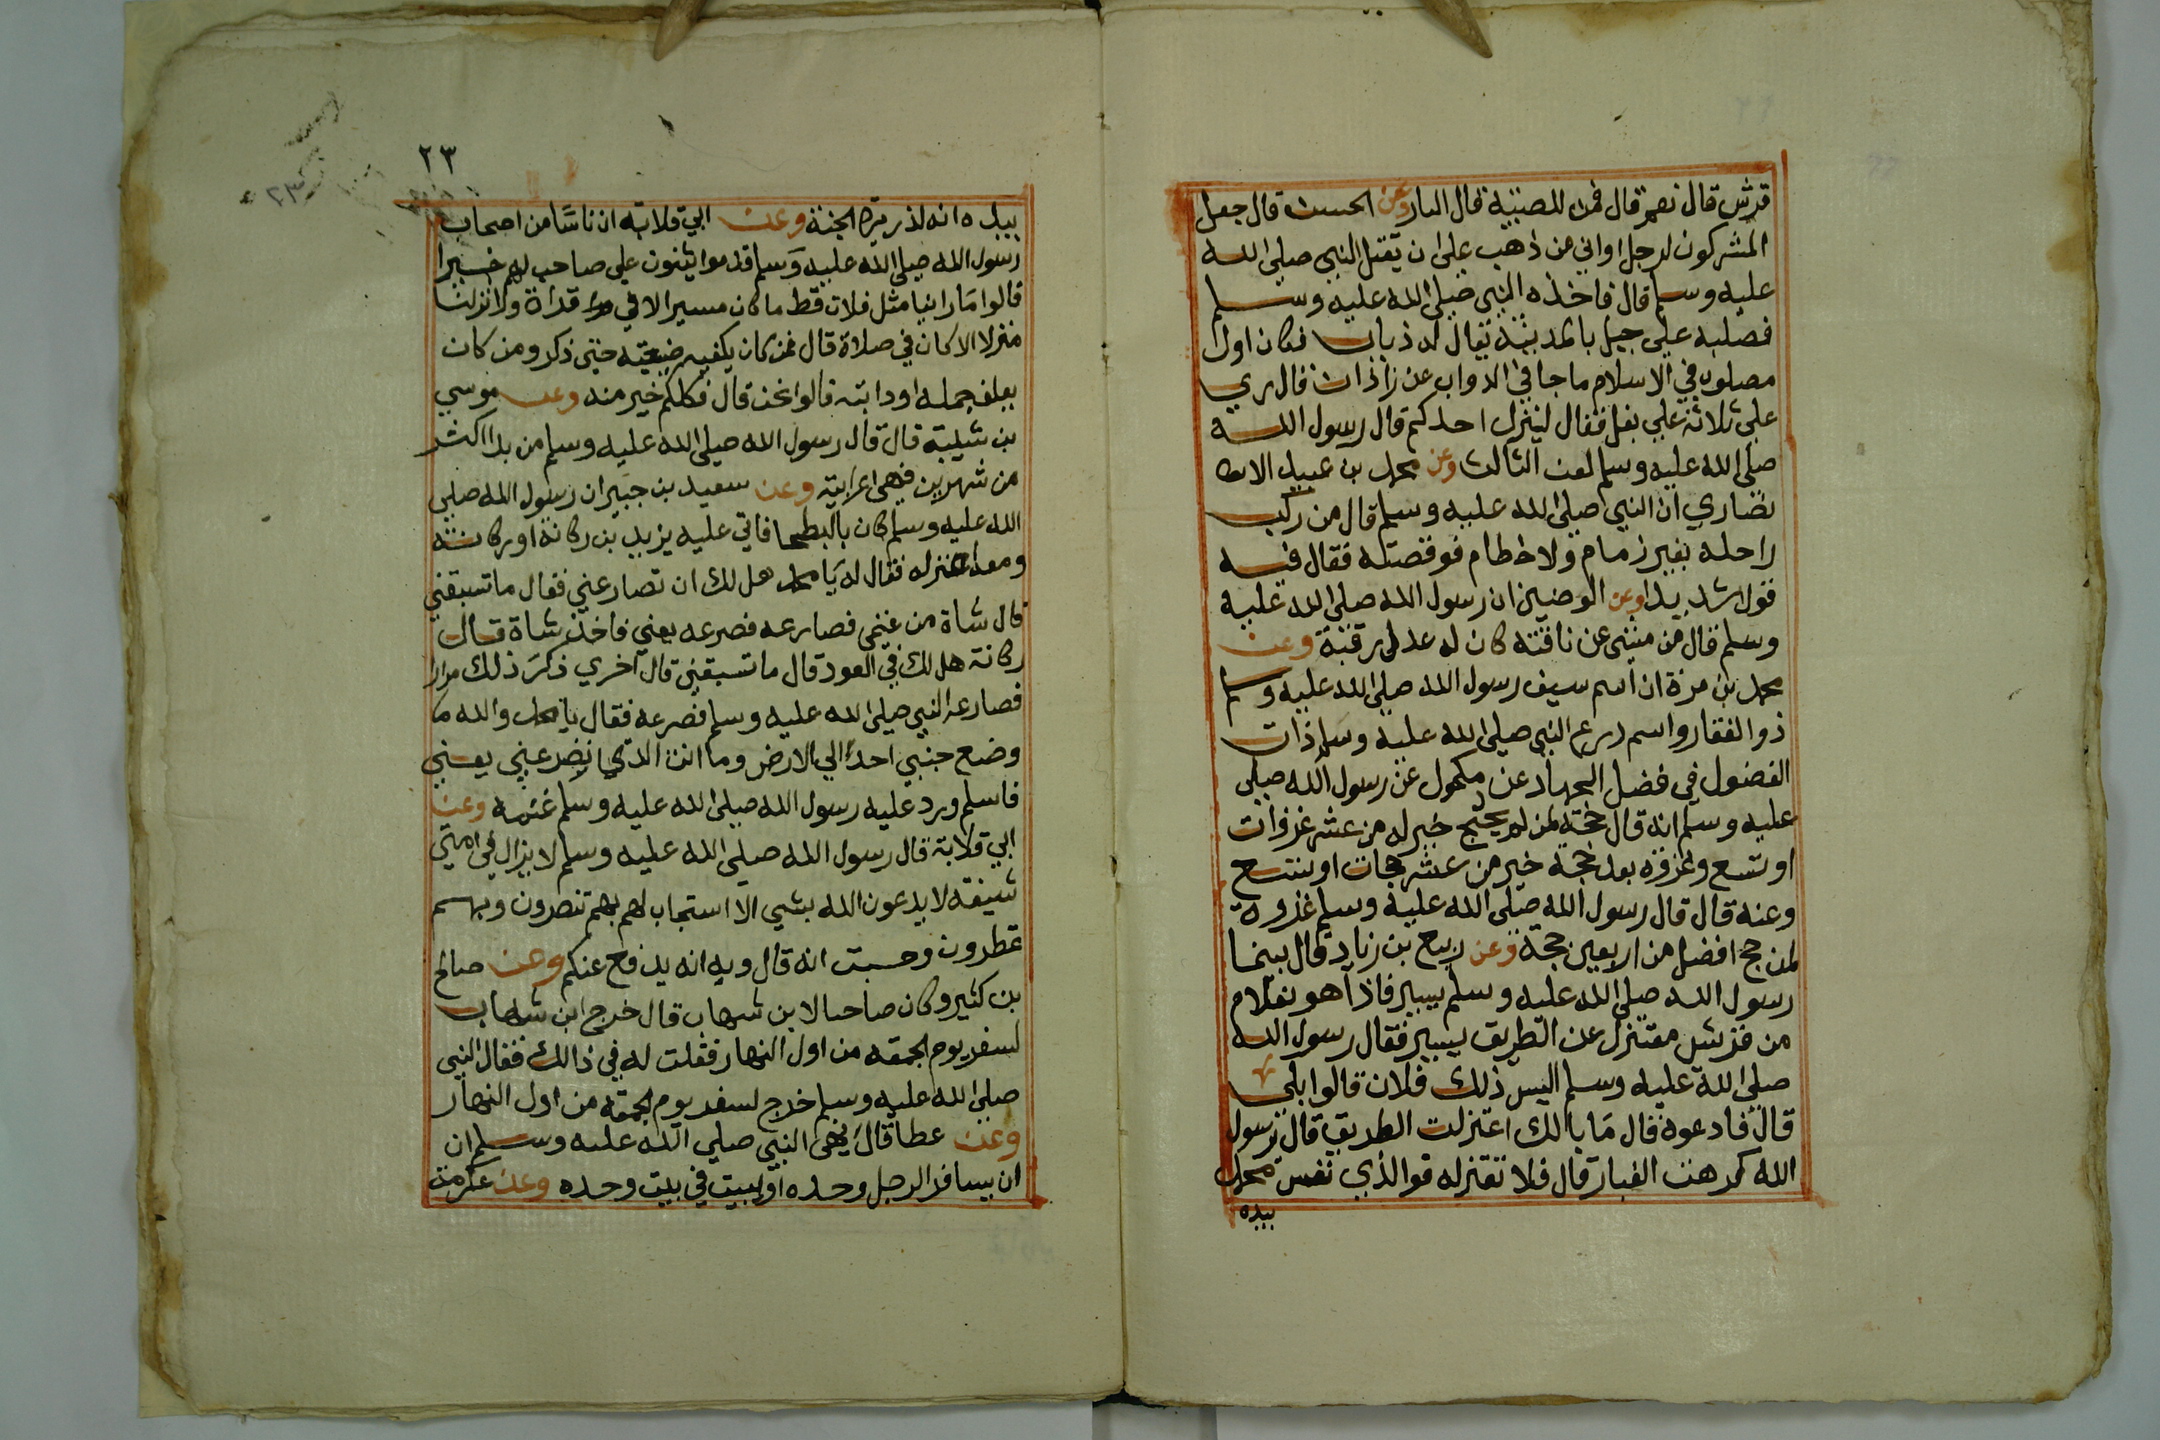 قرش قال نعم قال فمن للصبية قال النار وعن الحسن قال جعل
المشركون لرجل اواني من ذهب على ان يقتل النبي صلى الله
عليه وسلم قال فاخذه النبي صلى الله عليه وسلم
فصلبه على جبل بالمدينة يقال له ذباب فكان اول
مصلوب في الاسلام ما جا في الدواب عن زاذان قال ري
على ثلاثة علي بغل فقال لينزل احدكم قال رسول الله
صلى الله عليه وسلم لعن الثالث وعن محمد بن عبيد الا
نصاري ان النبي صلى الله عليه وسلم قال من ركب
راحله بغير زمام ولا خطام فوقصته فقال فيه
قولا شديدا وعن الوضين ان رسول الله صلى الله عليه
وسلم قال من مشى عن ناقته كان له عدل رقبة وعن
محمد بن مرة ان اسم سيف رسول الله صلى الله عليه وسلم
ذو الفقار واسم درع النبي صلى الله عليه وسلم ذات
الفضول في فضل الجهاد عن مكحول عن رسول الله صلى
عليه وسلم انه قال حجة لمن لم يحج خير له من عشر غزوات
او تسع وغزوه بعد حجة خير من عشر حجات او تسع
وعنه قال قال رسول الله صلى الله عليه وسلم غزوه
لمن حج افضل من اربعين حجة وعن ربيع بن زياد قال بينما
رسول الله صلى الله عليه وسلم يسير فاذا هو بغلام
من قريش معتزل عن الطريق يسير فقال رسول الله
صلى الله عليه وسلم اليس ذلك فلان قالوا بلى
قال فادعوه قال ما بالك اعتزلت الطريق قال يرسول
الله كرهت الغبار قال فلا تعتزله فوالذي نفس محمد
بيده
٢٣
بيده انه لذريرة الجنة وعن ابي قلابة ان ناسا من اصحاب
رسول الله صلى الله عليه وسلم قدموا يثنون علي صاحب لهم خيرا
قالوا ما راينا مثل فلان قط ما كان مسيرا الا في قراة ولا نزلنا
منزلا الا كان في صلاة قال فمن كان يكفيه ضيعته حتى ذكر ومن كان
يعلف جمله او دابته قالوا نحن قال فكلكم خير منه وعن موسي
بن شيبة قال قال رسول الله صلى الله عليه وسلم من بدا اكثر
من شهرين فهي اعرابية وعن سعيد بن جبير ان رسول الله صلى
الله عليه وسلم كان بالبطحا فاتي عليه يزيد بن ركانة او ركانة
ومعه اعنز له فقال له يا محمد هل لك ان تصارعني فقال ما تسبقني
قال شاة من غنمي فصارعه فصرعه يعني فاخذ شاة قال
ركانة هل لك في العود قال ما تسبقني قال اخري ذكر ذلك مرارا
فصارعه النبي صلى الله عليه وسلم فصرعه فقال يا محمد والله ما
وضع جنبي احد الي الارض وما انت الذي تصرعني يعني
فاسلم ورد عليه رسول الله صلى الله عليه وسلم غنمه وعن
ابي قلابة قال رسول الله صلى الله عليه وسلم لا يزال في امتي
شيعه لا يدعون الله بشي الا استجاب لهم بهم تنصرون وبهم
تمطرون وحسبت انه قال وبه انه يدفع عنكم وعن صالح
بن كثير وكان صاحبا لابن شهاب قال خرج ابن شهاب
لسفر يوم الجمعه من اول النهار فقلت له في ذالك فقال النبي
صلى الله عليه وسلم خرج لسفر يوم الجمعه من اول النهار
وعن عطا قال نهى النبي صلى الله عليه وسلم ان
ان يسافر الرجل وحده او يبيت في بيت وحده وعن عكرمة